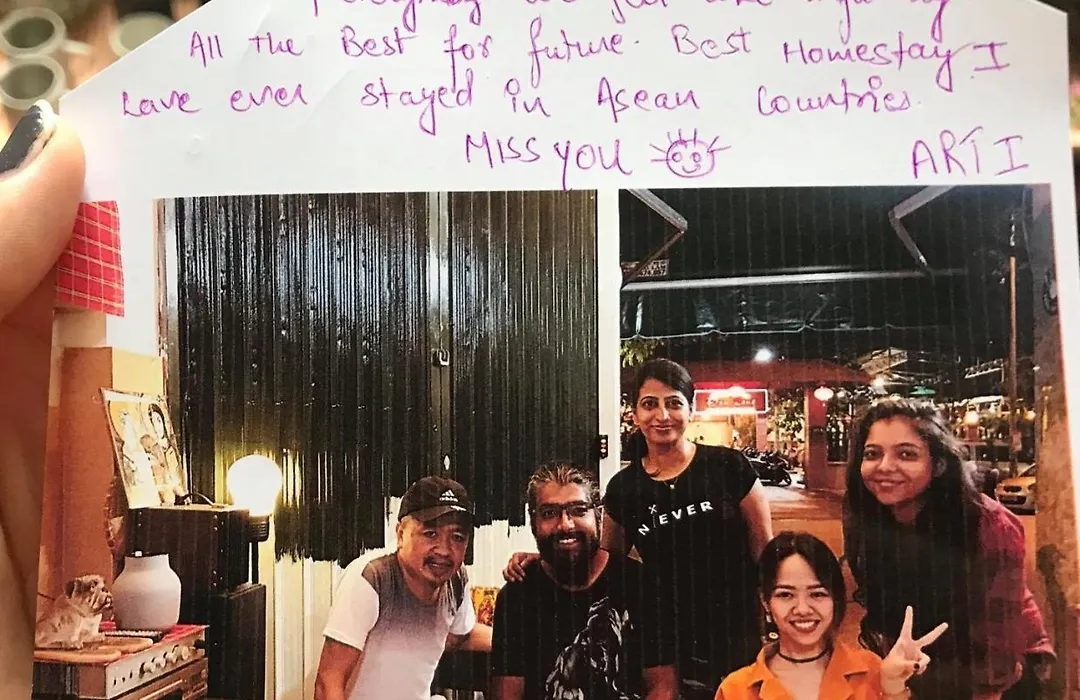 All The Best for future. Best Homestay I
have ever stayed in Asean Countries.
MISS YOU ARTI
adidas
NEVER